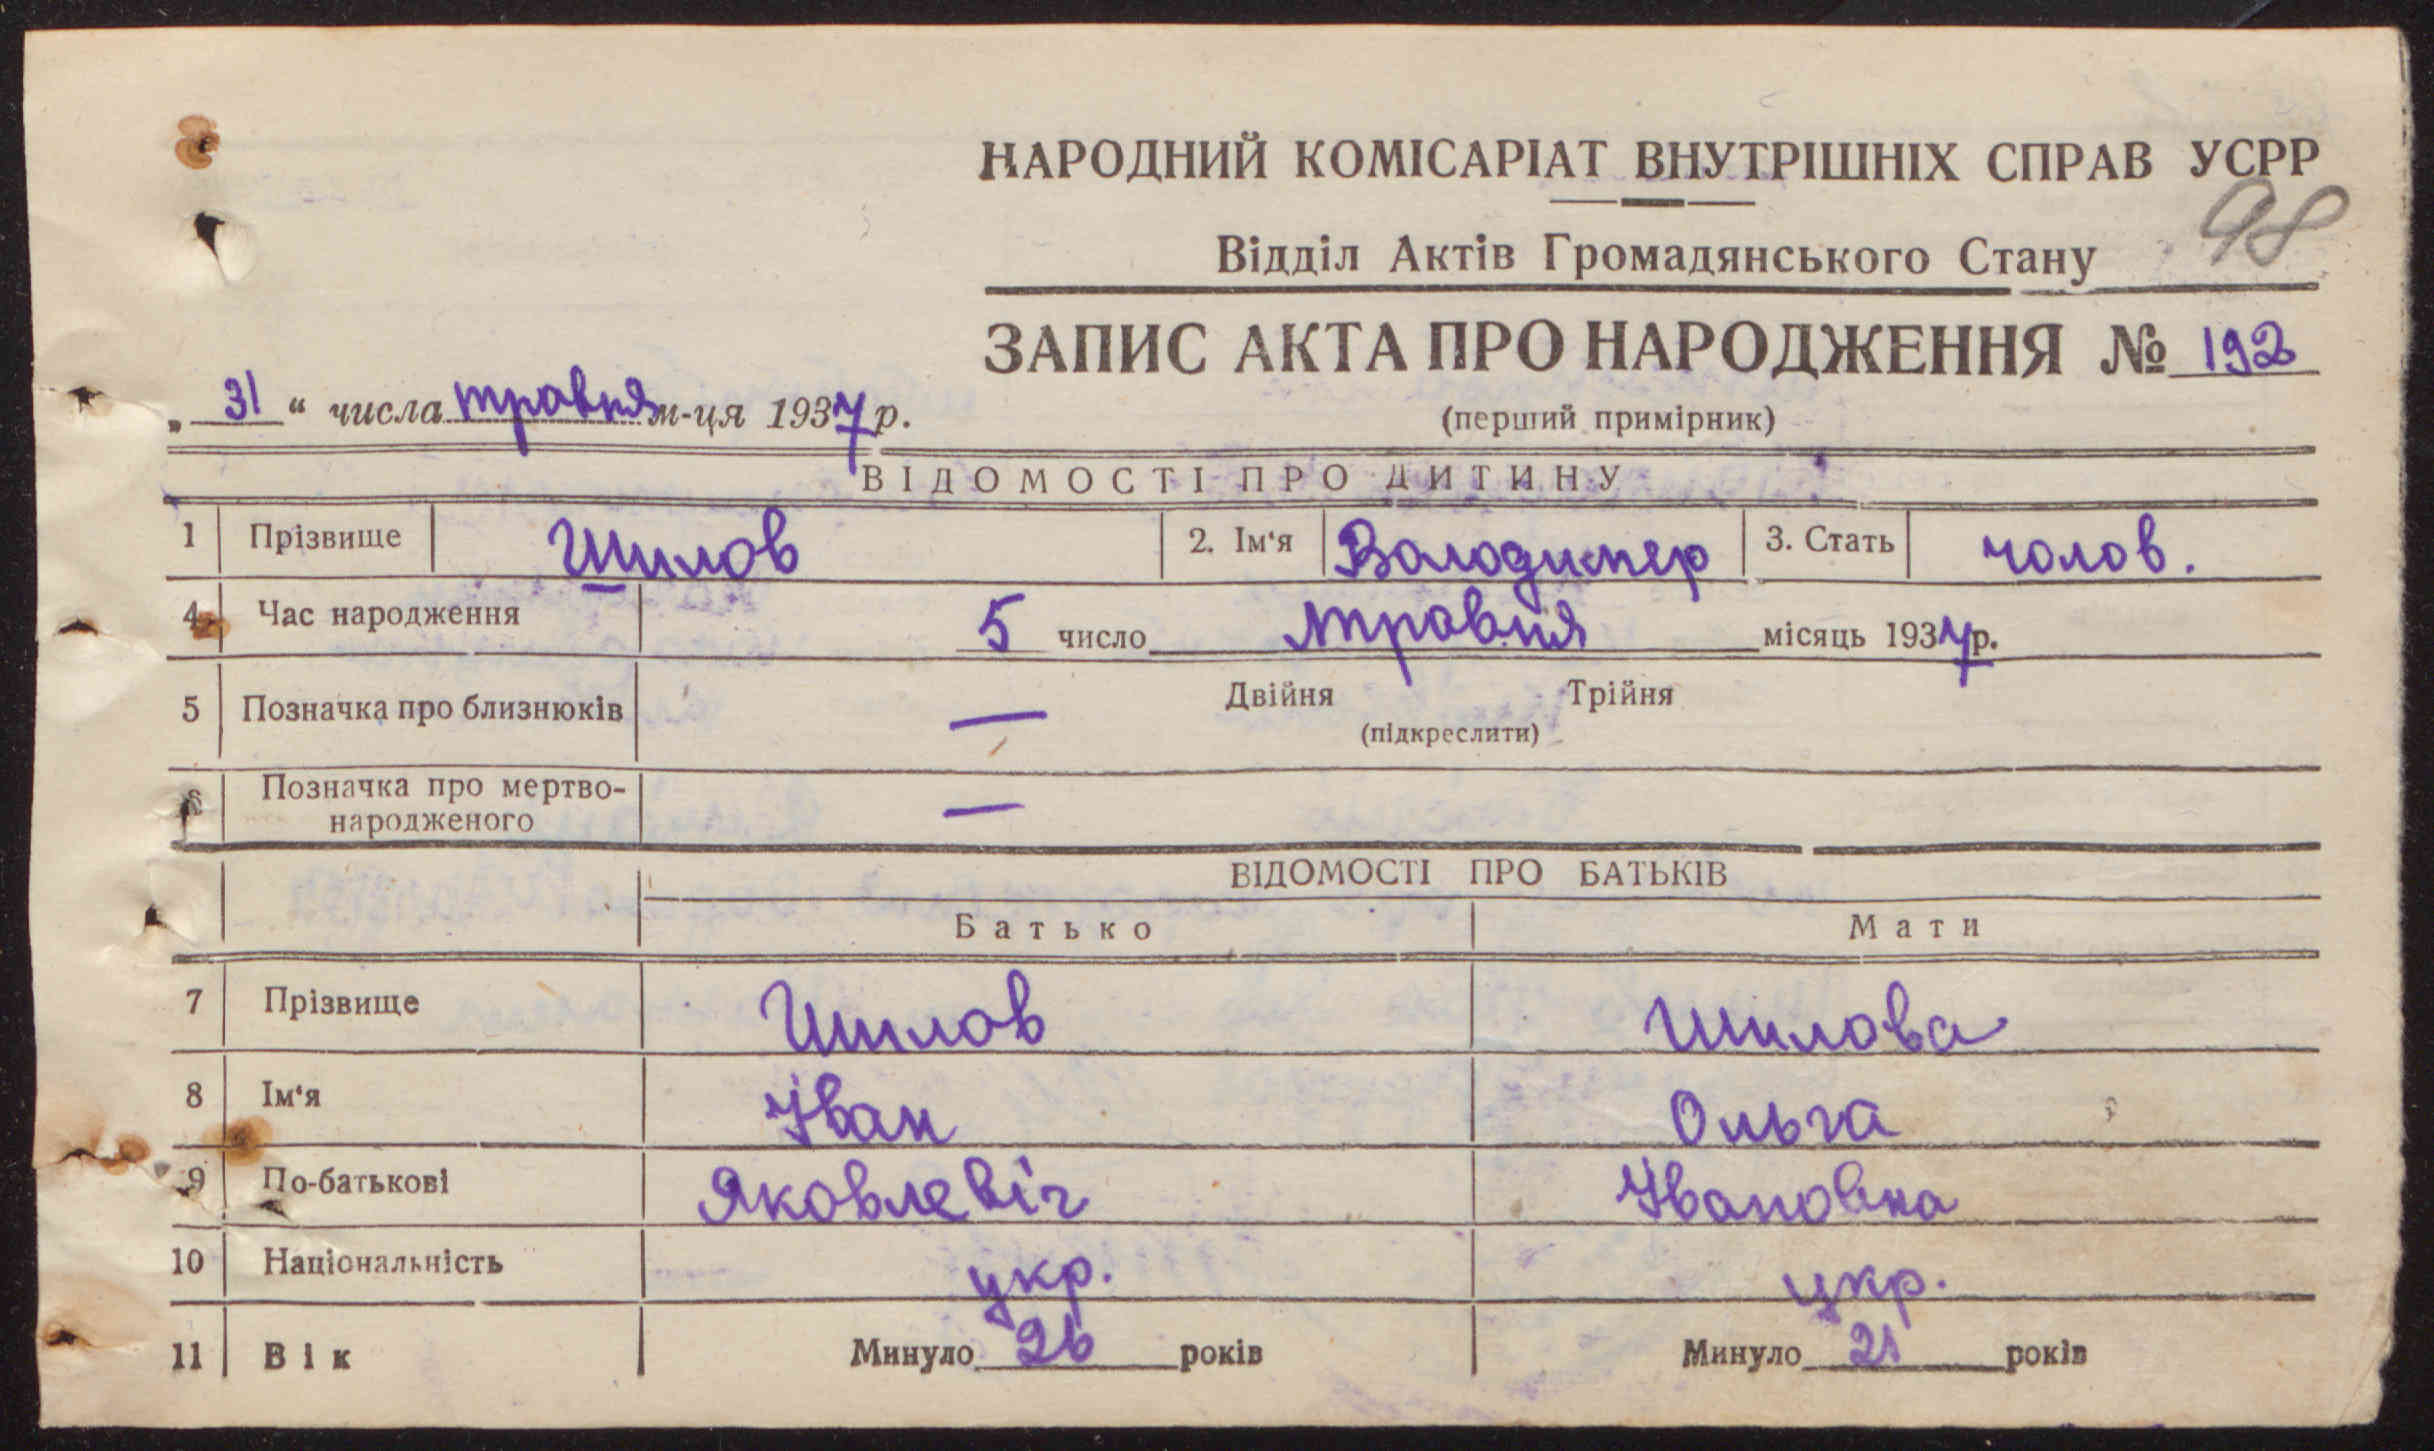 НАРОДНИЙ КОМІСАРІАТ ВНУТРІШНІХ СПРАВ УСРР
98
Відділ Актів Громадянського Стану
ЗАПИС АКТА ПРО НАРОДЖЕННЯ № 192
„31“ числа травня м-ця 1937 р.
(перший примірник)
ВІДОМОСТІ ПРО ДИТИНУ
1 Прізвище Шилов 2. Ім‘я Володимер 3. Стать чолов.
4 Час народження 5 число травня місяць 1937 р.
5 Позначка про близнюків — Двійня Трійня
(підкреслити)
6 Позначка про мертво-
народженого —
ВІДОМОСТІ ПРО БАТЬКІВ
Батько Мати
7 Прізвище Шилов Шилова
8 Ім‘я Іван Ольга
9 По-батькові Яковлевіч Івановна
10 Національність укр. укр.
11 Вік Минуло 26 років Минуло 21 років